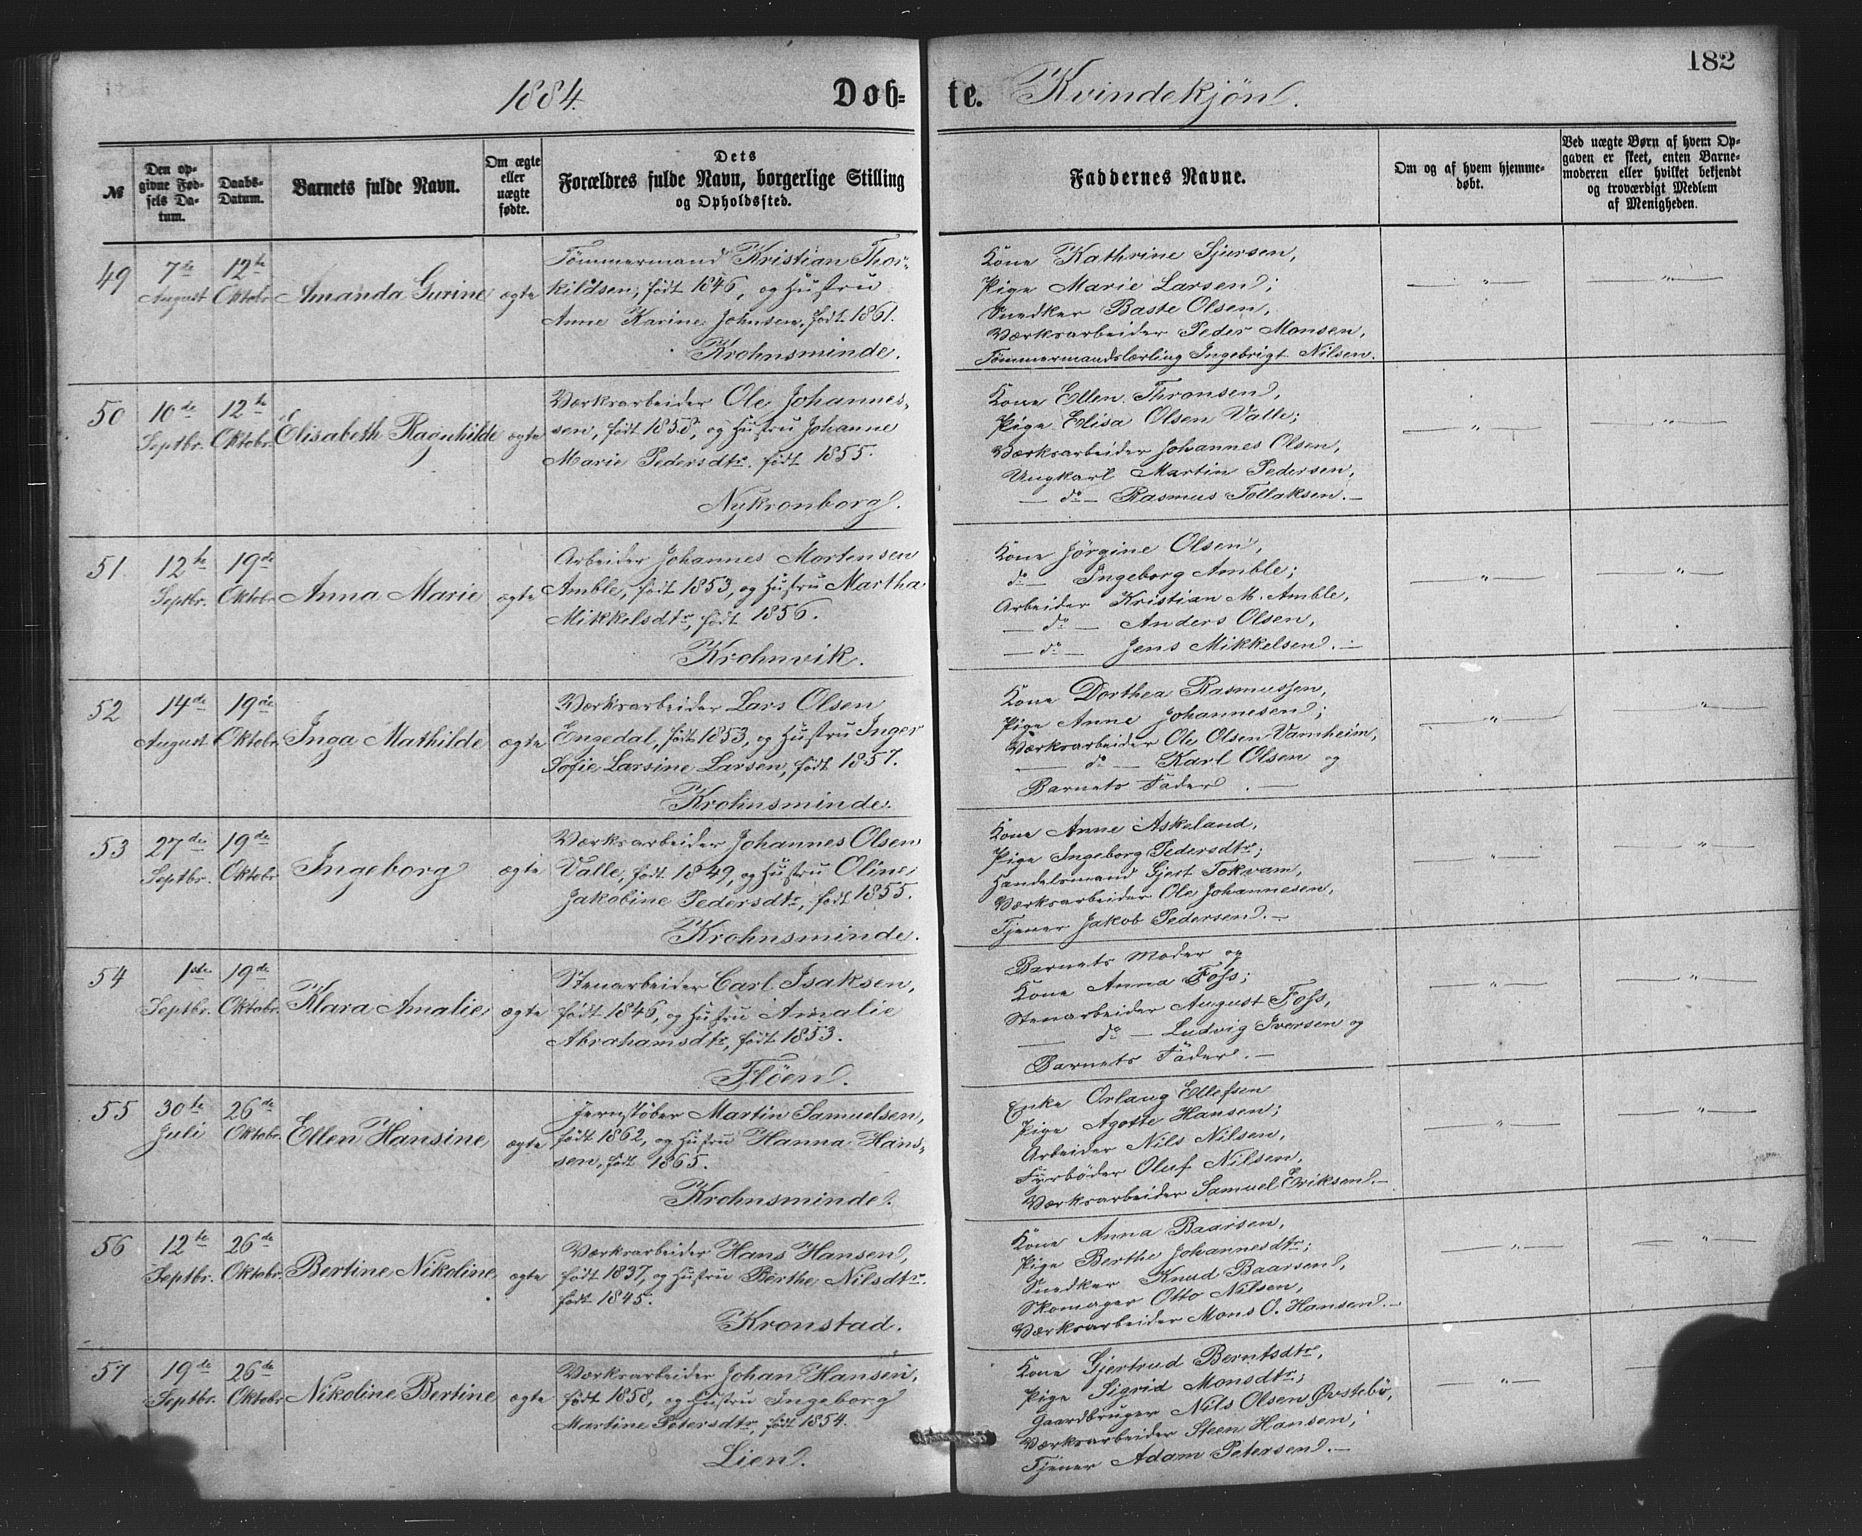 182
1884. Døb= te. Kvindekjøn.
№
Den op-
givne Fød-
sels Da-
tum.
Daabs-
Datum.
Barnets fulde Navn.
Om ægte
eller
uægte
fødte.
Dets
Forældres fulde Navn, borgerlige Stilling
og Opholdssted.
Faddernes Navne.
Om og af hvem hjemme-
døbt.
Ved uægte Børn af hvem Op-
gaven er skeet, enten Barne-
moderen eller hvilket bekjendt
og troværdigt Medlem
af Menigheden.
49
7de
August
12te
Oktobr.
Amanda Gurine
ægte
Tømmermand Kristian Thor-
kildsen, født 1846, og Hustru
Anne Karine Johnsen, født 1861.
Krohnsminde.
Kone Kathrine Sjursen,
Pige Marie Larsen;
Snedker Baste Olsen,
Værksarbeider Peder Monsen,
Tømmermandslærling Ingebrigt Nilsen.
— " —
— " —
50
10de
Septbr.
12te
Oktobr.
Elisabeth Ragnhilde
ægte
Værksarbeider Ole Johannes-
sen, født 1858, og Hustru Johanne
Marie Pedersdtr. født 1855.
Nykronborg.
Kone Ellen Thronsen,
Pige Elisa Olsen Valle;
Værksarbeider Johannes Olsen,
Ungkarl Martin Pedersen,
— do — Rasmus Tollaksen. —
— " —
— " —
51
12te
Septbr.
19de
Oktobr.
Anna Marie
ægte
Arbeider Johannes Mortensen
Amble, født 1853, og Hustru Martha
Mikkelsdtr, født 1856.
Krohnvik.
Kone Jørgine Olsen,
do — Ingeborg Amble;
Arbeider Kristian M. Amble,
— do — Anders Olsen,
— do — Jens Mikkelsen. —
— " —
— " —
52
14de
August
19de
Oktobr.
Inga Mathilde
ægte
Værksarbeider Lars Olsen
Engedal, født 1853, og Hustru Inger
Sofie Larsine Larsen, født 1857.
Krohnsminde.
Kone Dorthea Rasmussen,
Pige Anne Johannesen;
Værksarbeider Ole Olsen Vamheim,
— do — Karl Olsen og
Barnets Fader. —
— " —
— " —
53
27de
Septbr.
19de
Oktobr.
Ingeborg
ægte
Værksarbeider Johannes Olsen
Valle, født 1849, og Hustru Oline
Jakobine Pedersdtr, født 1855.
Krohnsminde.
Kone Anne Askeland,
Pige Ingeborg Pedersdtr;
Handelsmand Gjert Tokvam,
Værksarbeider Ole Johannesen,
Tjener Jakob Pedersen. —
— " —
— " —
54
1ste
Septbr.
19de
Oktobr.
Klara Amalie
ægte
Stenarbeider Carl Isaksen,
født 1846, og Hustru Amalie
Abrahamsdtr, født 1853.
Fløen.
Barnets Moder og
Kone Anna Foss;
Stenarbeider August Foss,
— do — Ludvig Iversen og
Barnets Fader. —
— " —
— " —
55
30te
Juli
26de
Oktobr.
Ellen Hansine
ægte
Jernstøber Martin Samuelsen,
født 1862, og Hustru Hanna Hans-
sen, født 1865.
Krohnsminde.
Enke Orlaug Ellefsen
Pige Agotte Hansen;
Arbeider Nils Nilsen,
Fyrbøder Oluf Nilsen,
Værksarbeider Samuel Eriksen. —
— " —
— " —
56
12te
Septbr.
26de
Oktobr.
Bertine Nikoline
ægte
Værksarbeider Hans Hansen,
født 1837, og Hustru Berthe Nilsdtr.
født 1845.
Kronstad.
Kone Anna Baarsen,
Pige Berthe Johannesdtr;
Snedker Knud Baarsen,
Skomager Otto Nilsen,
Værksarbeider Mons O. Hansen. —
— " —
— " —
57
19de
Septbr.
26de
Oktobr.
Nikoline Bertine
ægte
Værksarbeider Johan Hansen,
født 1858, og Hustru Ingeborg
Martine Petersdtr, født 1854.
Lien.
Kone Gjertrud Berntsdtr,
Pige Sigrid Monsdtr;
Gaardbruger Nils Olsen Øvstebø,
Værksarbeider Steen Hansen,
Tjener Adam Petersen. —
— " —